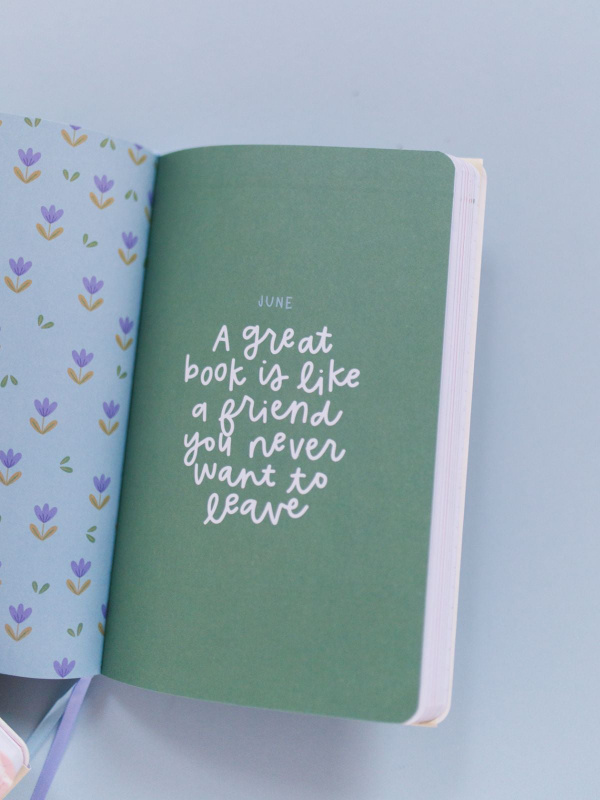 JUNE
A great
book is like
a friend
you never
want to
leave